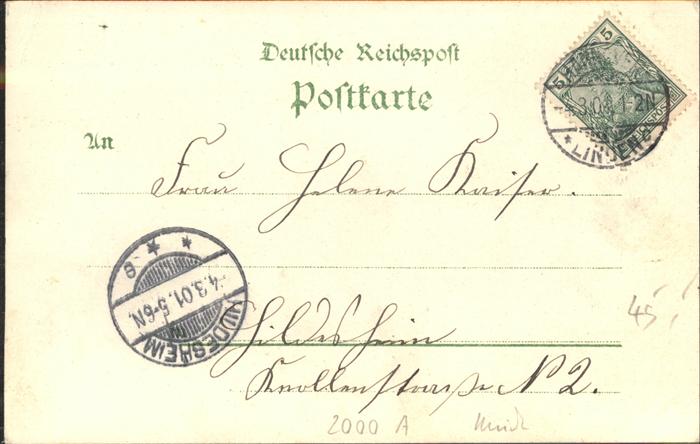 Deutsche Reichspost
Postkarte
5
5
4.3.01 1-2N
* LINDEN
An
Frau Helene Kaiser.
4.3.01.5-6N
HILDESHEIM
Hildesheim
Knollenstraße N 2.
45,
2000 A